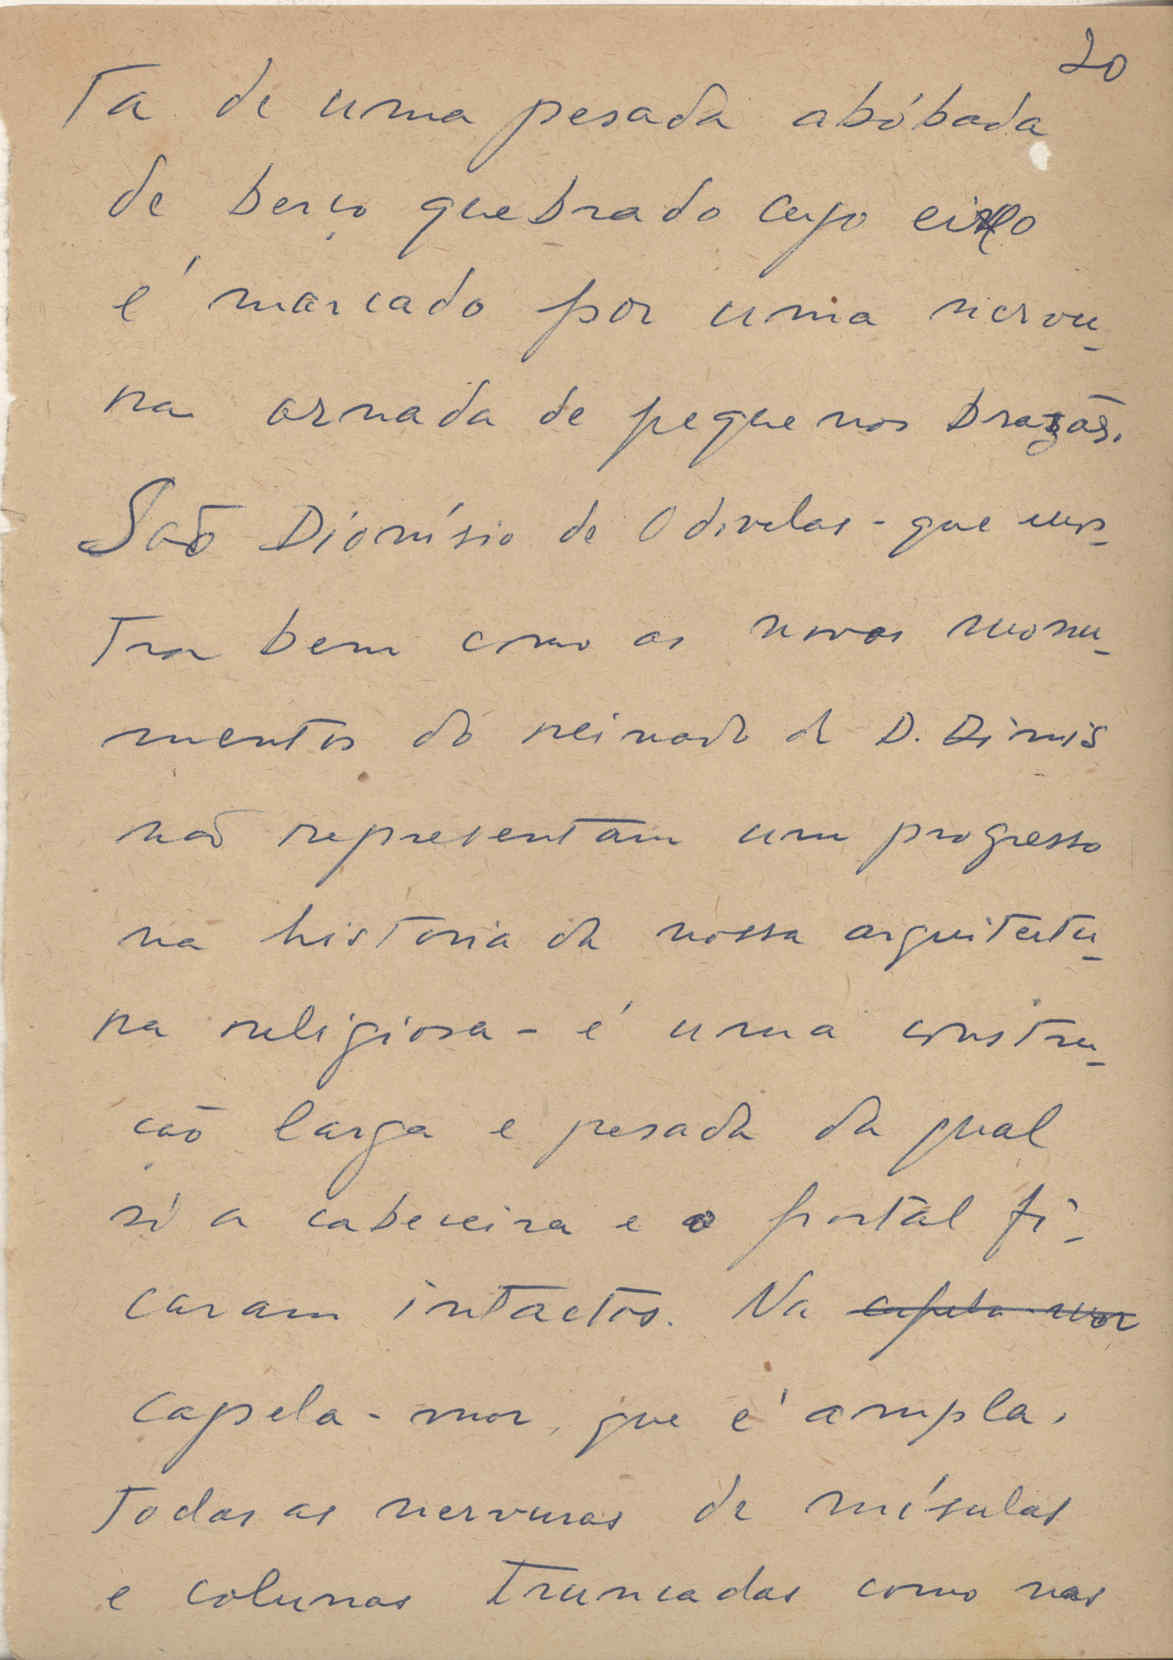 20
ta de uma pesada abóbada
de berço quebrado cujo eixo
é marcado por uma nervu-
ra ornada de pequenos brazões.
São Dionísio de Odivelas - que mos-
tra bem como os novos monu-
mentos do reinado de D. Dinis
não representam um progresso
na historia da nossa arquitectu-
ra religiosa - é uma constru-
ção larga e pesada da qual
só a cabeceira e o portal fi-
caram intactos. Na capela-mor
capela-mor, que é ampla,
todas as nervuras de mísulas
e colunas truncadas como nas